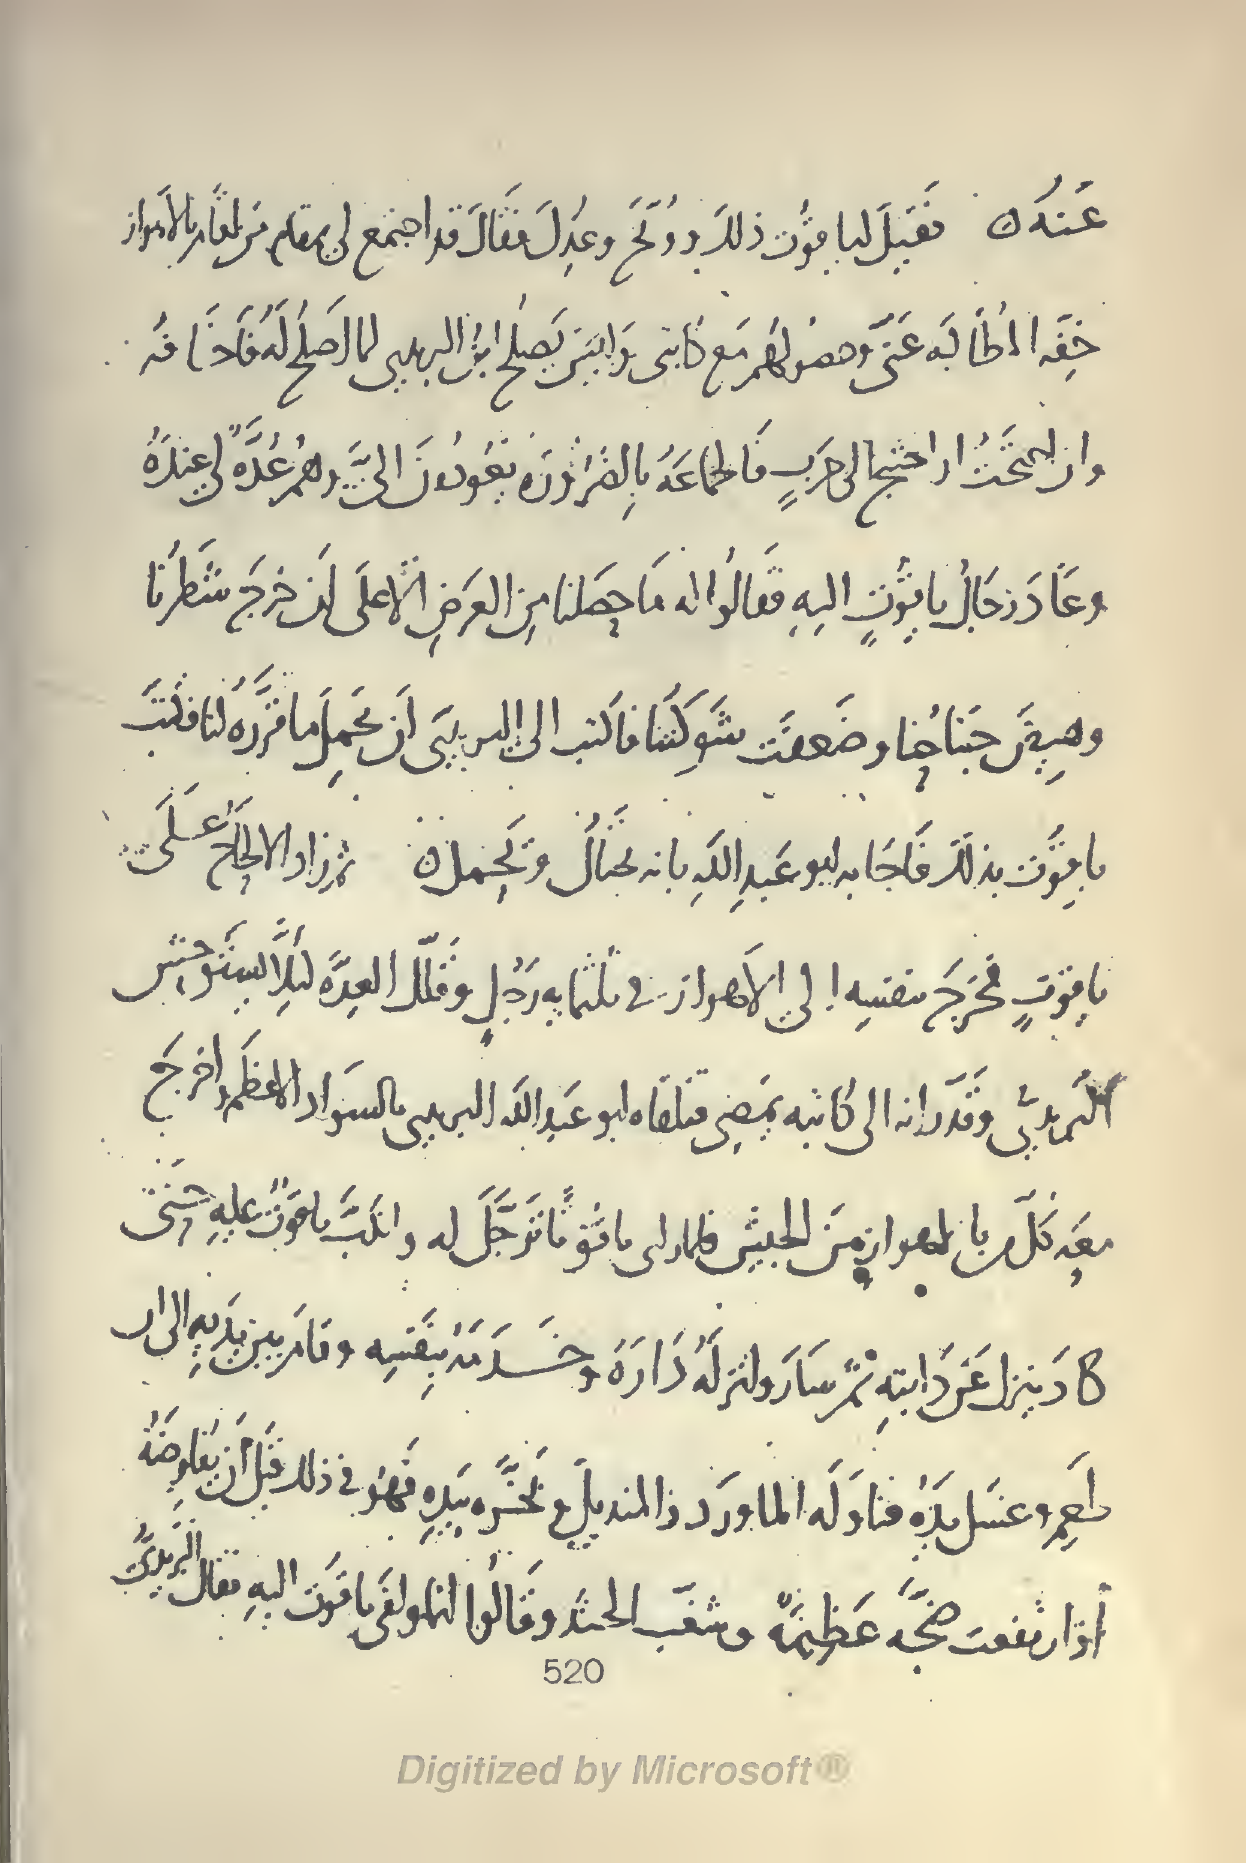 عنه ن فقيل لياقوت ذلك ووبخ وعذل فقال قد اجتمع لى بمقام من اقام بالاهواز
خفة المطالبة عنى وحصولهم مع كاتبى وليس يصلح ابن البريدى لما اصلح له فاخافه
وان احتيج الى حرب فالجماعة بالضرورة يعودون الىّ وهم عدّة لى عنده
وعاد رجال ياقوت اليه فقالوا له ما حصلنا من العرض الا على ان خرج شطرنا
وهيض جناحنا وضعفت شوكتنا فاكتب الى البريدى ان يحمل ما قرره لنا فكتب
ياقوت بذلك فاجابه ابو عبد الله بانه يحتال ويحمل ن ثم زاد الالحاح على
ياقوت فخرج بنفسه الى الاهواز فى ثلثماية رجل وقلل العدة ليلا يستوحش
البريدىّ وقدّر انه الى كاتبه يمضى فتلقاه ابو عبد الله البريدى بالسواد الاعظم واخرج
معه كل من بالاهواز من الجيش فلما راى ياقوتا ترجّل له وانكبّ ياقوت عليه حتى
كاد ينزل عن دابته ثم سار وانزله داره وخدمه بنفسه وقام بين يديه الى ان
طعم وغسل يده فناوله الماورد والمنديل وبخّره بيده فهو فى ذلك قبل ان يفاوضه
اذ ارتفعت ضجّة عظيمة وشغب الجند وقالوا انما وافى ياقوت اليه فقال البريدىّ
520
Digitized by Microsoft®